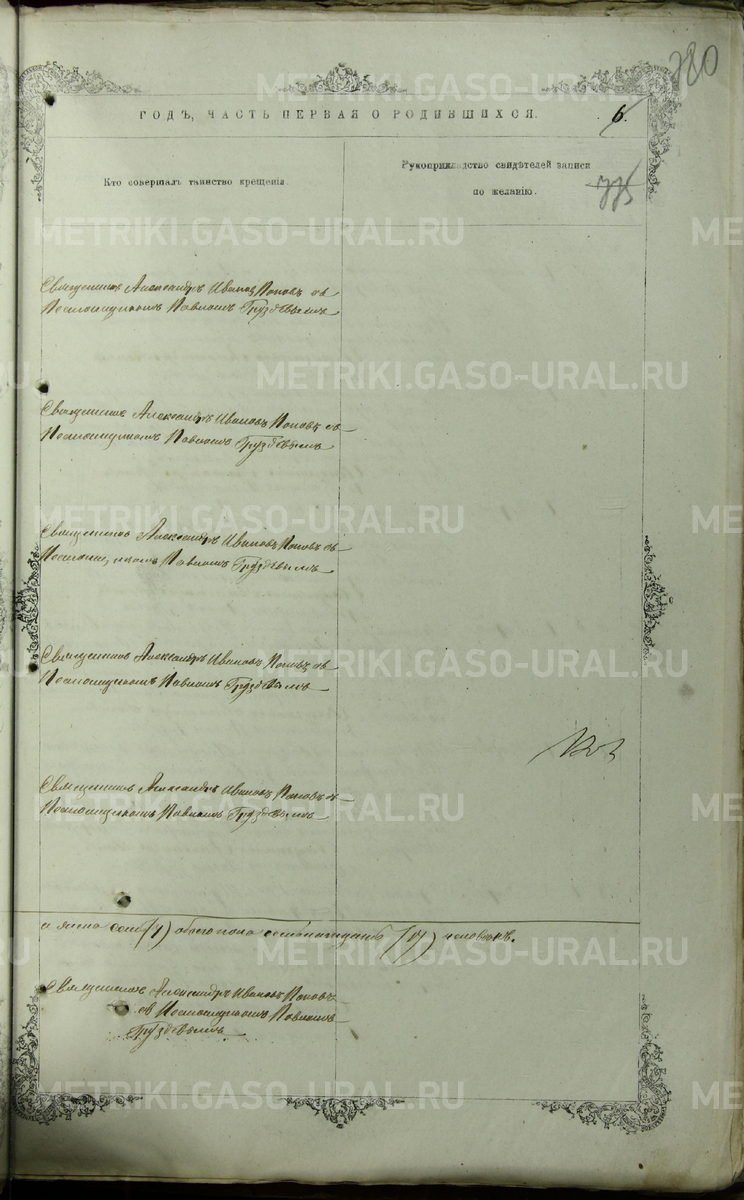 380
ГОДЪ, ЧАСТЬ ПЕРВАЯ О РОДИВШИХСЯ.
6.
Кто совершалъ таинство крещенія.
Рукоприкладство свидѣтелей записи
по желанію.
375
Священникъ Александръ Ивановъ Поповъ съ
Псаломщикомъ Павломъ Груздевымъ
Священникъ Александръ Ивановъ Поповъ съ
Псаломщикомъ Павломъ Груздевымъ
Священникъ Александръ Ивановъ Поповъ съ
Псаломщикомъ Павломъ Груздевымъ
Священникъ Александръ Ивановъ Поповъ съ
Псаломщикомъ Павломъ Груздевымъ
Священникъ Александръ Ивановъ Поповъ съ
Псаломщикомъ Павломъ Груздевымъ
(7) обоего пола семнадцать (17) человѣкъ.
Священникъ Александръ Ивановъ Поповъ
съ Псаломщикомъ Павломъ
Груздевымъ
METRIKI.GASO-URAL.RU